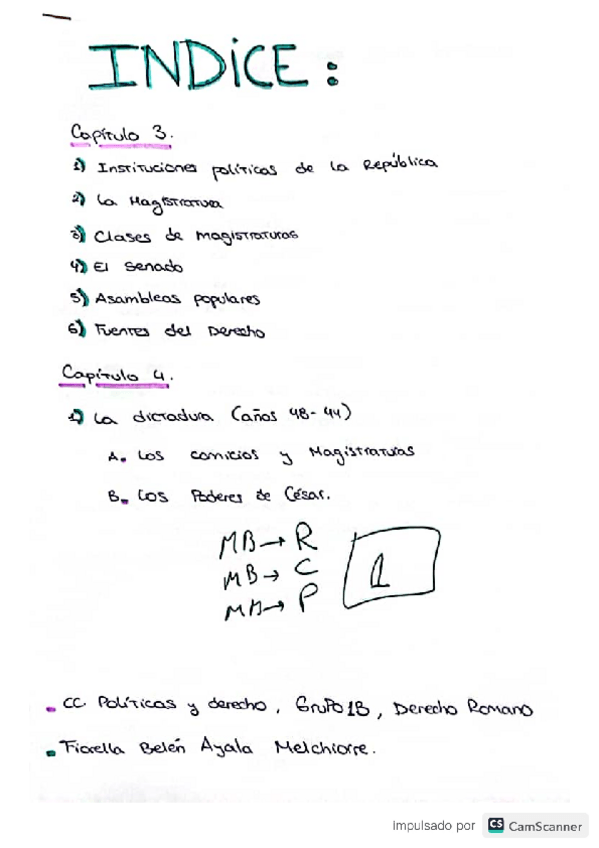 INDICE:
Capítulo 3.
1) Instituciones políticas de la República
2) La Magistratura
3) Clases de magistraturas
4) El Senado
5) Asambleas populares
6) Fuentes del Derecho
Capítulo 4.
1) La dictadura (años 48-44)
A. Los comicios y Magistraturas
B. Los Poderes de César.
MB→ R
MB→ C
MB→ P
1
CC. Políticas y derecho, Grupo 1B, Derecho Romano
Fiorella Belén Ayala Melchiorre.
Impulsado por CS CamScanner